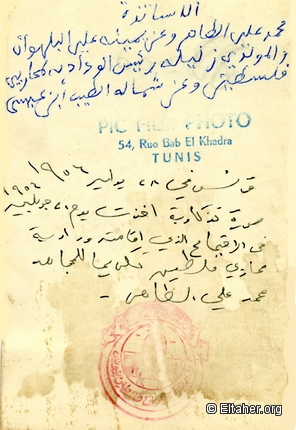 الاساتذة
محمد علي الطاهر وعن يمينه علي البلهوان
والمولدي زليله رئيس الودادية لمحاربي
فلسطين وعن شماله الطيب بن عيسى
PIC FILM PHOTO
54, Rue Bab El Khadra
TUNIS
تونس في ١٨ يوليو ١٩٥٦
صورة تذكارية اخذت يوم جويليه ١٩٥٦
في الاجتماع الذي اقامته ودادية
محاربي فلسطين تكريما للمجاهد
محمد علي الطاهر -
© Eltaher.org